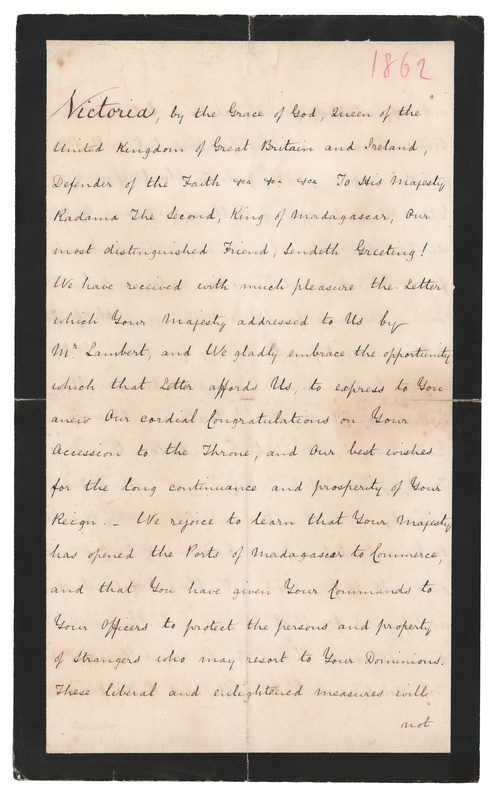 1862
Victoria, by the Grace of God, Queen of the
United Kingdom of Great Britain and Ireland,
Defender of the Faith &ca &ca &ca To His Majesty
Radama The Second, King of Madagascar, Our
most distinguished Friend, Sendeth Greeting!
We have received with much pleasure the Letter
which Your Majesty addressed to Us by
Mr Lambert, and We gladly embrace the opportunity
which that Letter affords Us, to express to You
anew Our cordial Congratulations on Your
Accession to the Throne, and Our best wishes
for the long continuance and prosperity of Your
Reign. _ We rejoice to learn that Your Majesty
has opened the Ports of Madagascar to Commerce,
and that You have given Your Commands to
Your Officers to protect the persons and property
of Strangers who may resort to Your Dominions.
These liberal and enlightened measures will
not